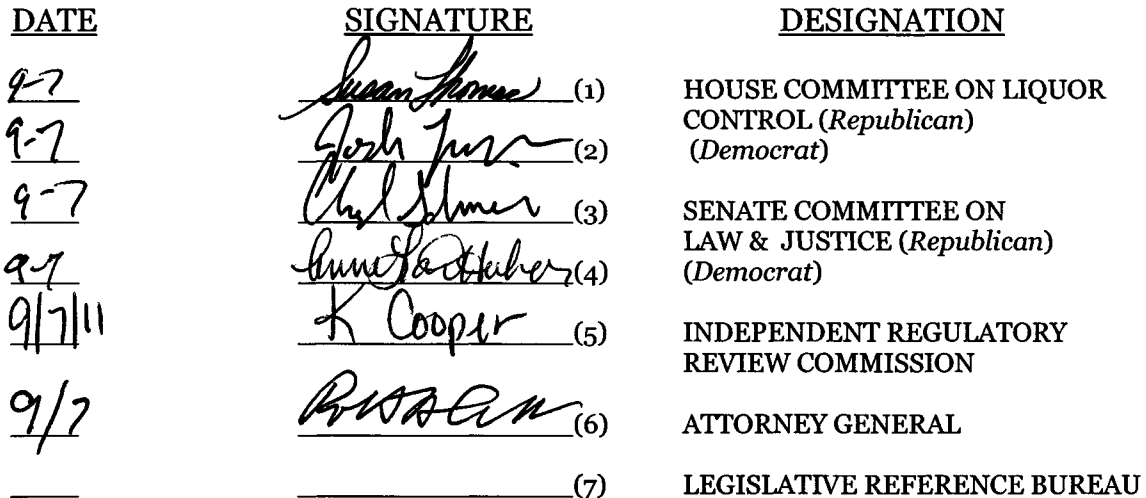 DATE SIGNATURE DESIGNATION
9-7 Susan Thomas (1) HOUSE COMMITTEE ON LIQUOR
CONTROL (Republican)
9-7 Josh (2) (Democrat)
9-7 (3) SENATE COMMITTEE ON
LAW & JUSTICE (Republican)
9-7 (4) (Democrat)
9/7/11 K Cooper (5) INDEPENDENT REGULATORY
REVIEW COMMISSION
9/7 (6) ATTORNEY GENERAL
(7) LEGISLATIVE REFERENCE BUREAU